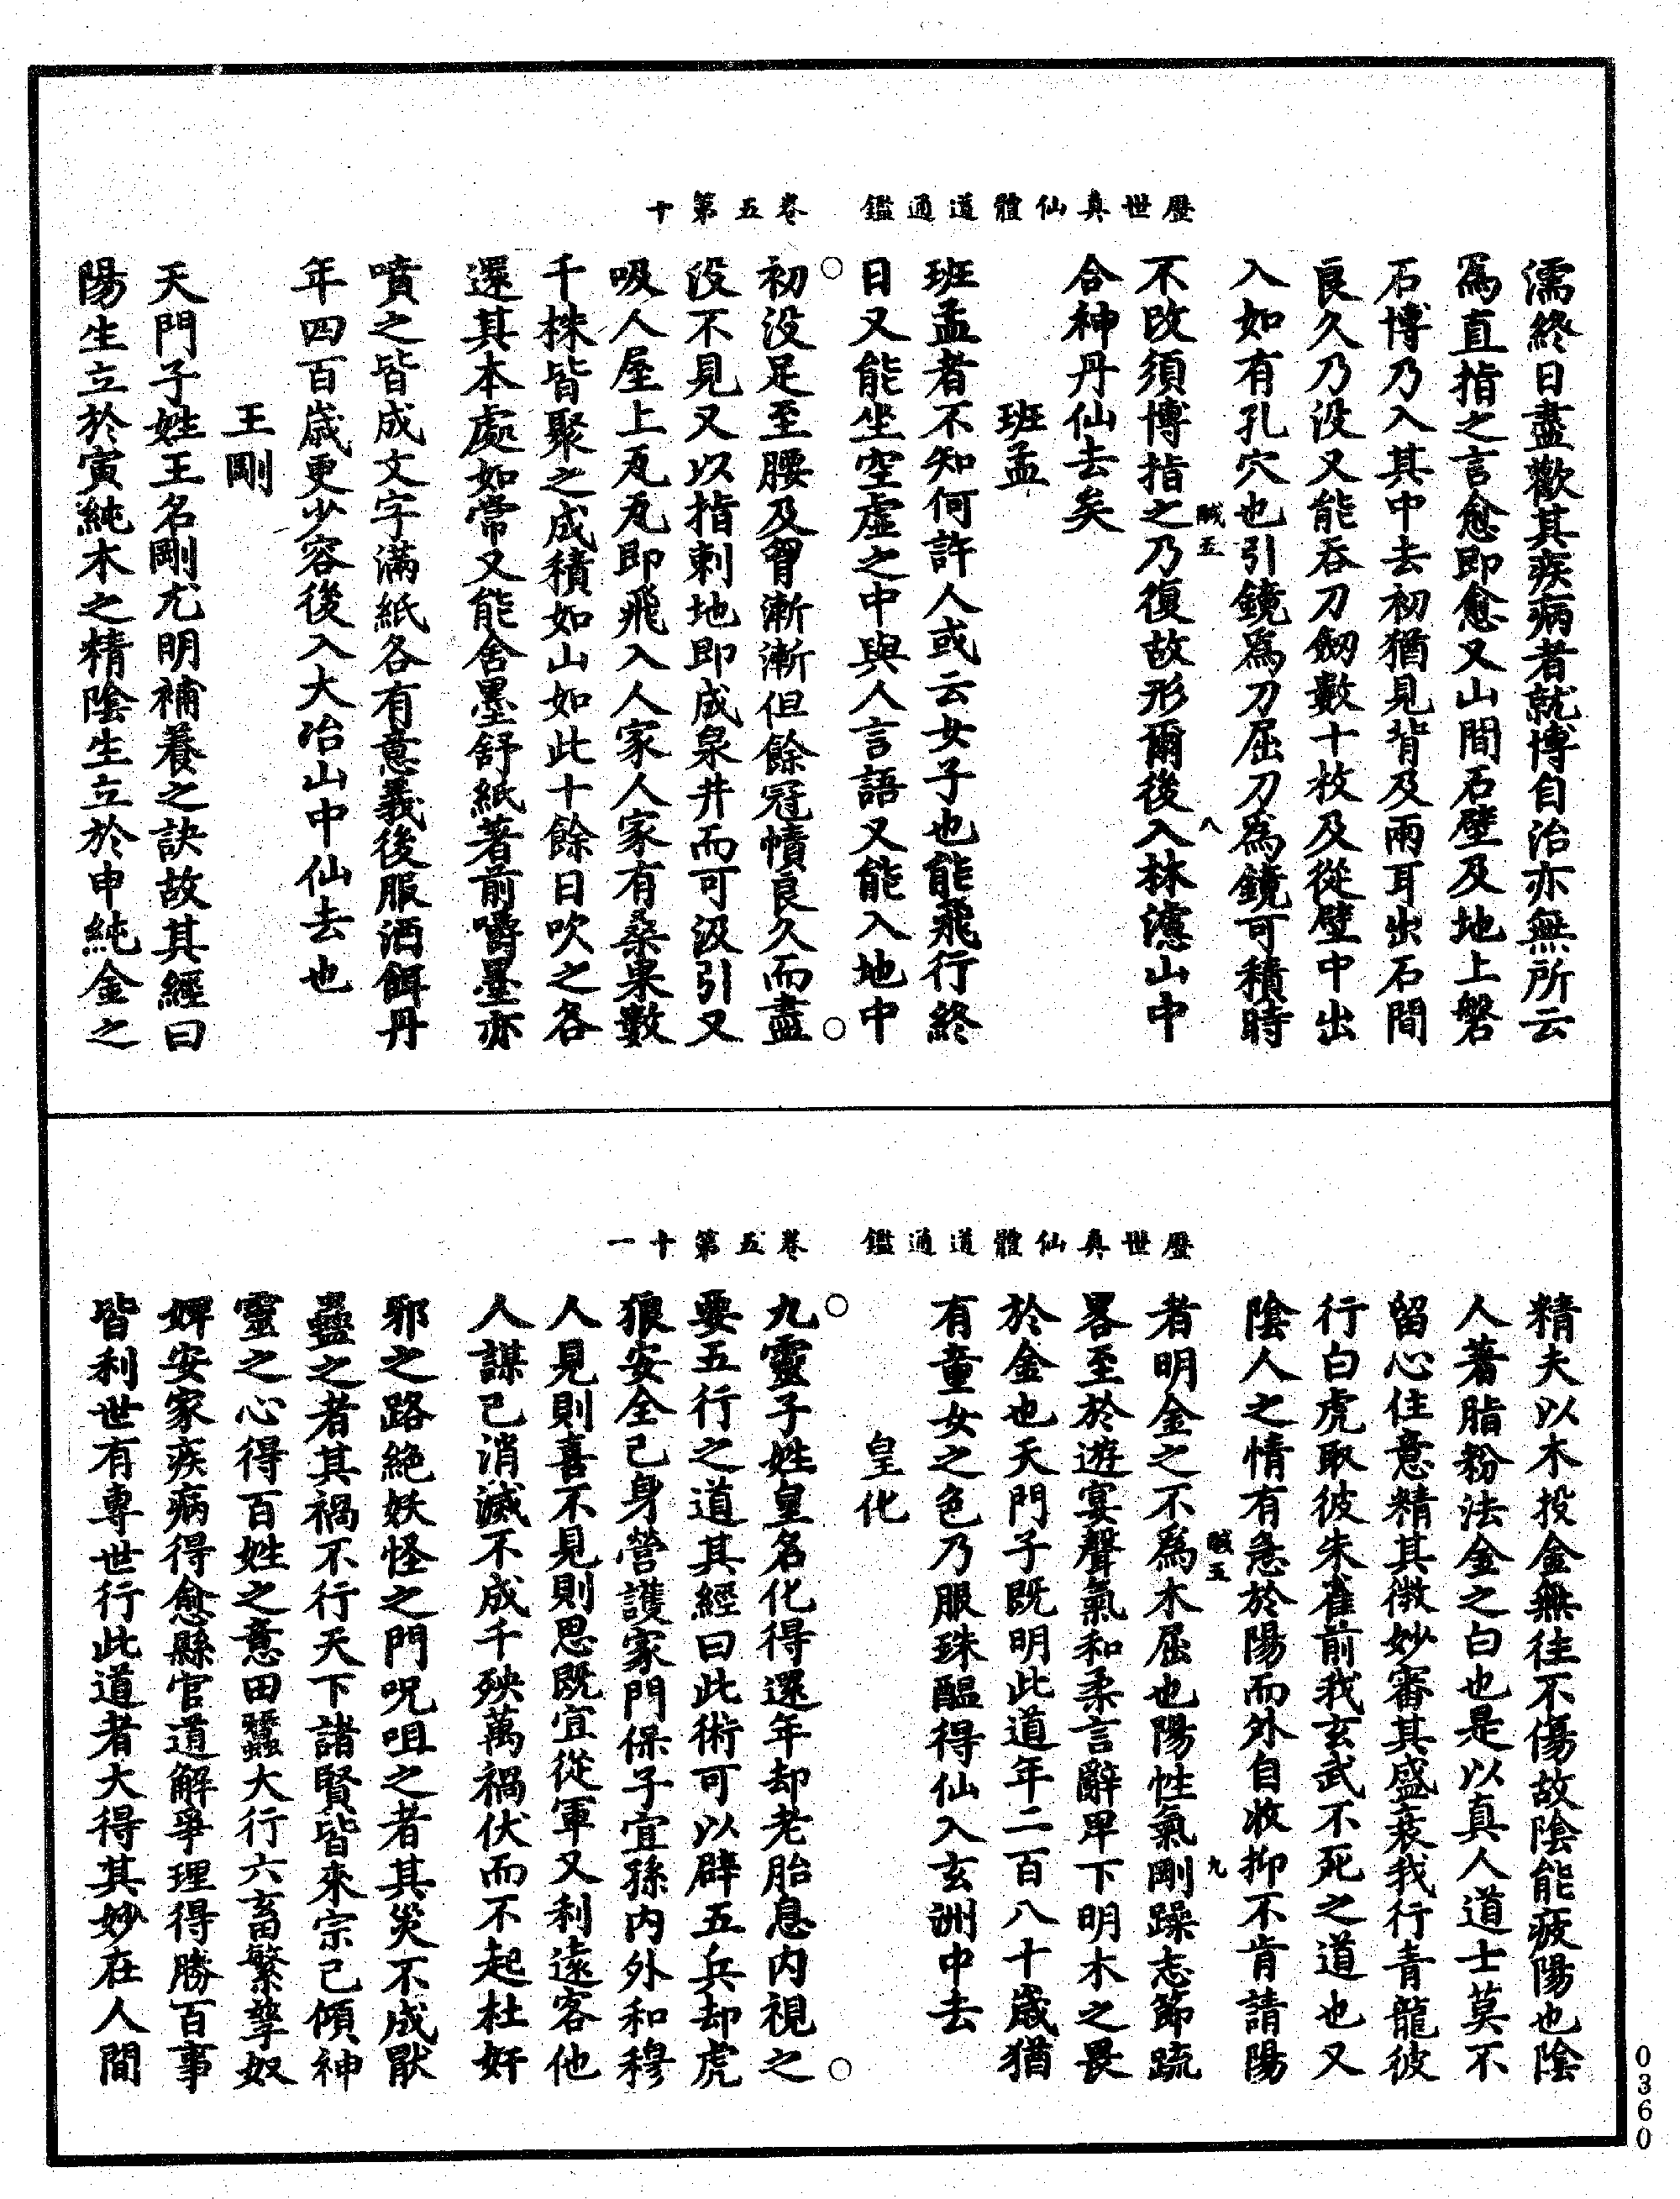 歷世真仙體道通鑑　卷五第十
濡終日盡歡其疾病者就博自治亦無所云
爲直指之言愈即愈又山間石壁及地上磐
石博乃入其中去初猶見背及兩耳出石間
良久乃没又能吞刀劒數十枚及從壁中出
入如有孔穴也引鏡爲刀屈刀爲鏡可積時
賊五　八
不改須博指之乃復故形爾後入林慮山中
合神丹仙去矣
班孟
班孟者不知何許人或云女子也能飛行終
日又能坐空虛之中與人言語又能入地中
初没足至腰及胷漸漸但餘冠幘良久而盡
没不見又以指刺地即成泉井而可汲引又
吸人屋上瓦瓦即飛入人家人家有桑果數
千株皆聚之成積如山如此十餘日吹之各
還其本處如常又能含墨舒紙著前嚼墨亦
噴之皆成文字滿紙各有意義後服酒餌丹
年四百歲更少容後入大冶山中仙去也
王剛
天門子姓王名剛尤明補養之訣故其經曰
陽生立於寅純木之精陰生立於申純金之
歷世真仙體道通鑑　卷五第十一
精夫以木投金無往不傷故陰能疲陽也陰
人著脂粉法金之白也是以真人道士莫不
留心住意精其微妙審其盛衰我行青龍彼
行白虎取彼朱雀前我玄武不死之道也又
陰人之情有急於陽而外自收抑不肯請陽
賊五　九
者明金之不爲木屈也陽性氣剛躁志節疏
畧至於遊宴聲氣和柔言辭卑下明木之畏
於金也天門子既明此道年二百八十歲猶
有童女之色乃服珠醞得仙入玄洲中去
皇化
九靈子姓皇名化得還年却老胎息内視之
要五行之道其經曰此術可以辟五兵却虎
狼安全己身營護家門保子宜孫内外和穆
人見則喜不見則思既宜從軍又利遠客他
人謀己消滅不成千殃萬禍伏而不起杜奸
邪之路絶妖怪之門呪咀之者其災不成厭
蠱之者其禍不行天下諸賢皆來宗己傾神
靈之心得百姓之意田蠶大行六畜繁孳奴
婢安家疾病得愈縣官道解爭理得勝百事
皆利世有專世行此道者大得其妙在人間
0360